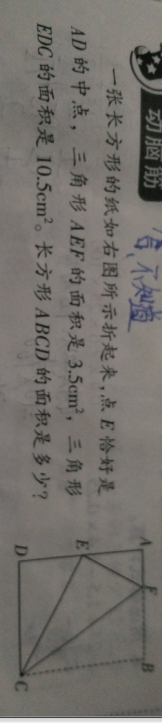 动脑筋
不知道
一张长方形的纸如右图所示折起来,点E恰好是
AD的中点,三角形AEF的面积是3.5cm²,三角形
EDC的面积是10.5cm²。长方形ABCD的面积是多少?
A F B
E
D C